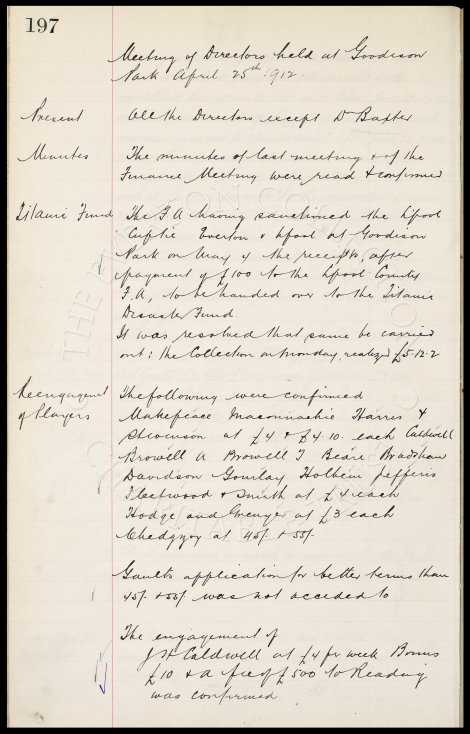 197
Meeting of Directors held at Goodison
Park April 25th 1912
Present All the Directors except Dr Baxter
Minutes The minutes of last meeting & of the
Finance Meeting were read & confirmed
Titanic Fund The F A having sanctioned the Lpool
Cuptie Everton v Lpool at Goodison
Park on May 4 the receipts, after
payment of £100 to the Lpool County
F.A, to be handed over to the Titanic
Disaster Fund
It was resolved that same be carried
out: the Collection on Monday realized £5-12-2
Reengagement The following were confirmed
of Players Makepeace Maconnachie Harris &
Stevenson at £4 & £4.10. each Caldwell
Browell A Browell T Beare Bradshaw
Davidson Gourlay Holbem Jefferis
Fleetwood & Smith at £4 each
Hodge and Grenyer at £3 each
Chedgzoy at 45/- & 55/-
Gault's application for better terms than
45/- & 55/- was not acceded to
The engagement of
J H Caldwell at £4 per week Bonus
£10 & a fee of £500 to Reading
was confirmed